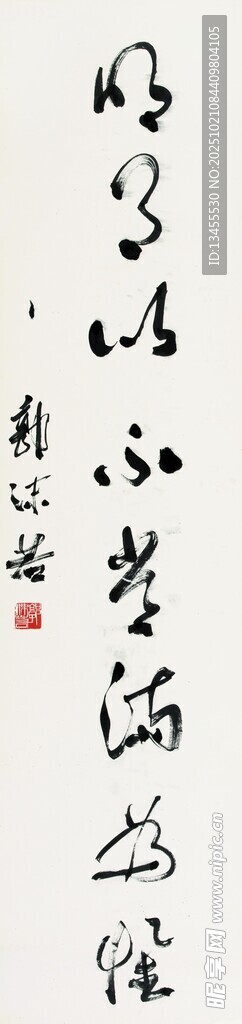 明月以不常滿為
郭沫若
ID:13455530 NO:20251021084409804105
昵享网 www.nipic.cn